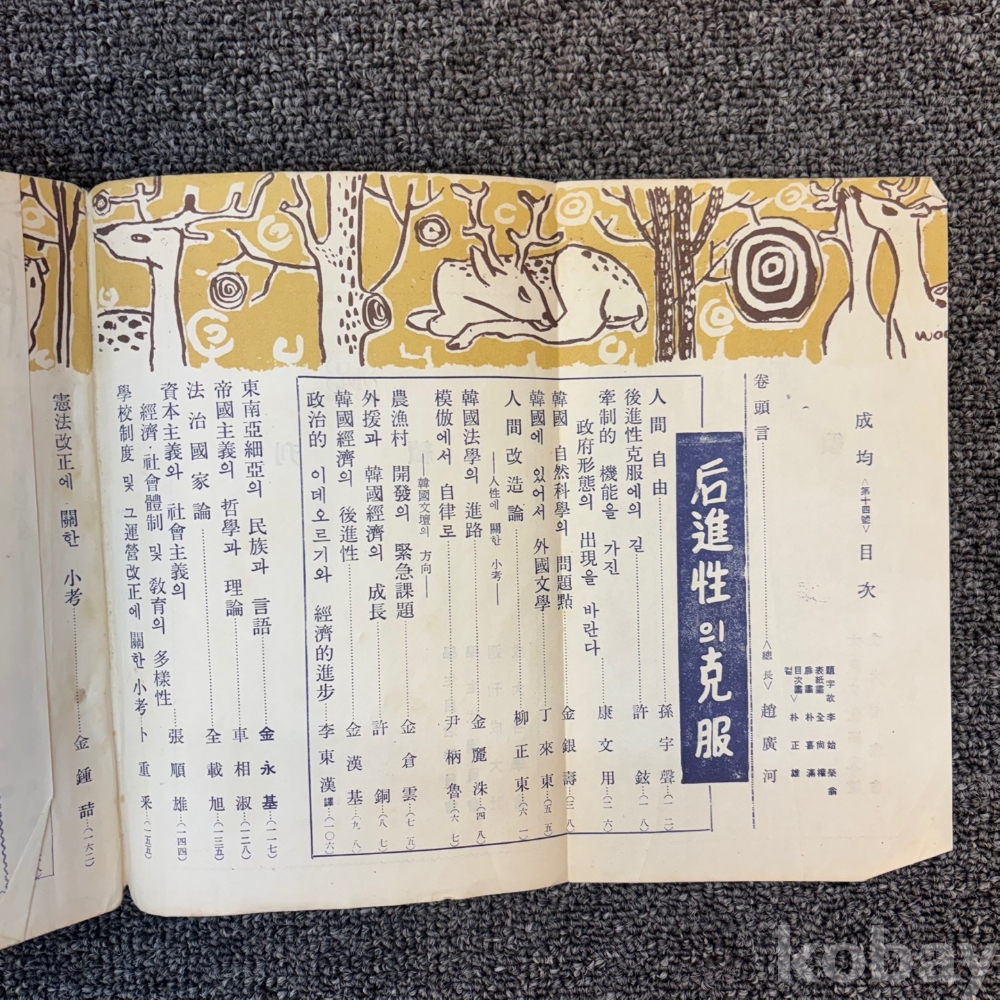 成均 <第十四號> 目次
題字 故 李始榮 翁
表紙畫 全尙櫷
扉畫 朴喜滿
目次畫 朴正雄
컽
卷頭言 <總長> 趙廣河
后進性의 克服
人間自由 孫宇聲 (一二)
後進性克服에의 길 許鉉 (一八)
牽制的 機能을 가진
政府形態의 出現을 바란다 康文用 (二六)
韓國 自然科學의 問題點 金銀濤 (三八)
韓國에 있어서 外國文學 丁來東 (五五)
人間改造論 柳正東 (六一)
——人性에 關한 小考——
韓國法學의 進路 金麗洙 (四八)
模倣에서 自律로 尹柄魯 (六七)
——韓國文壇의 方向——
農漁村 開發의 緊急課題 金倉雲 (七五)
外援과 韓國經濟의 成長 許銅 (八七)
韓國經濟의 後進性 金漢基 (九八)
政治的 이데오르기와 經濟的進步 李東漢 譯 (一〇六)
東南亞細亞의 民族과 言語 金永基 (一一七)
帝國主義의 哲學과 理論 車相淑 (一二八)
法治國家論 全載旭 (一三五)
資本主義와 社會主義의
經濟·社會體制 및 敎育의 多樣性 張順雄 (一四四)
學校制度 및 그 運營改正에 關한 小考 卜重采 (一五五)
憲法改正에 關한 小考 金鍾喆 (一六二)
WOO
kobay